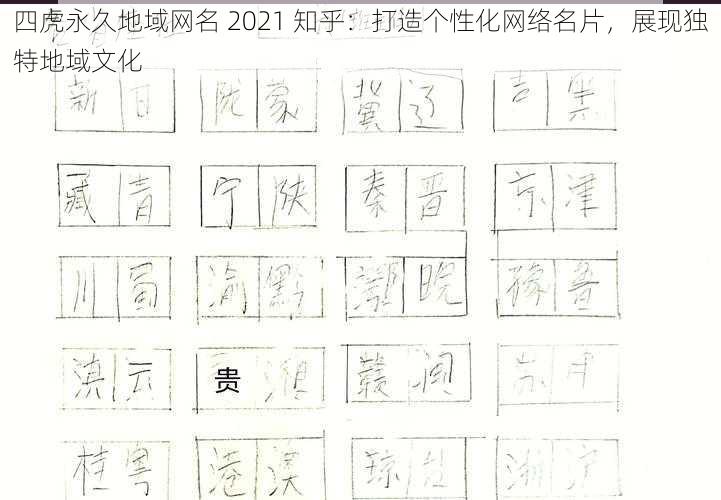 四虎永久地域网名 2021 知乎：打造个性化网络名片，展现独
特地域文化
新 甘 陇 蒙 冀 辽 吉 黑
藏 青 宁 陕 秦 晋 京 津
川 蜀 渝 黔 鄂 皖 豫 鲁
滇 云 贵 湘 赣 闽 苏
桂 粤 港 澳 琼 沪